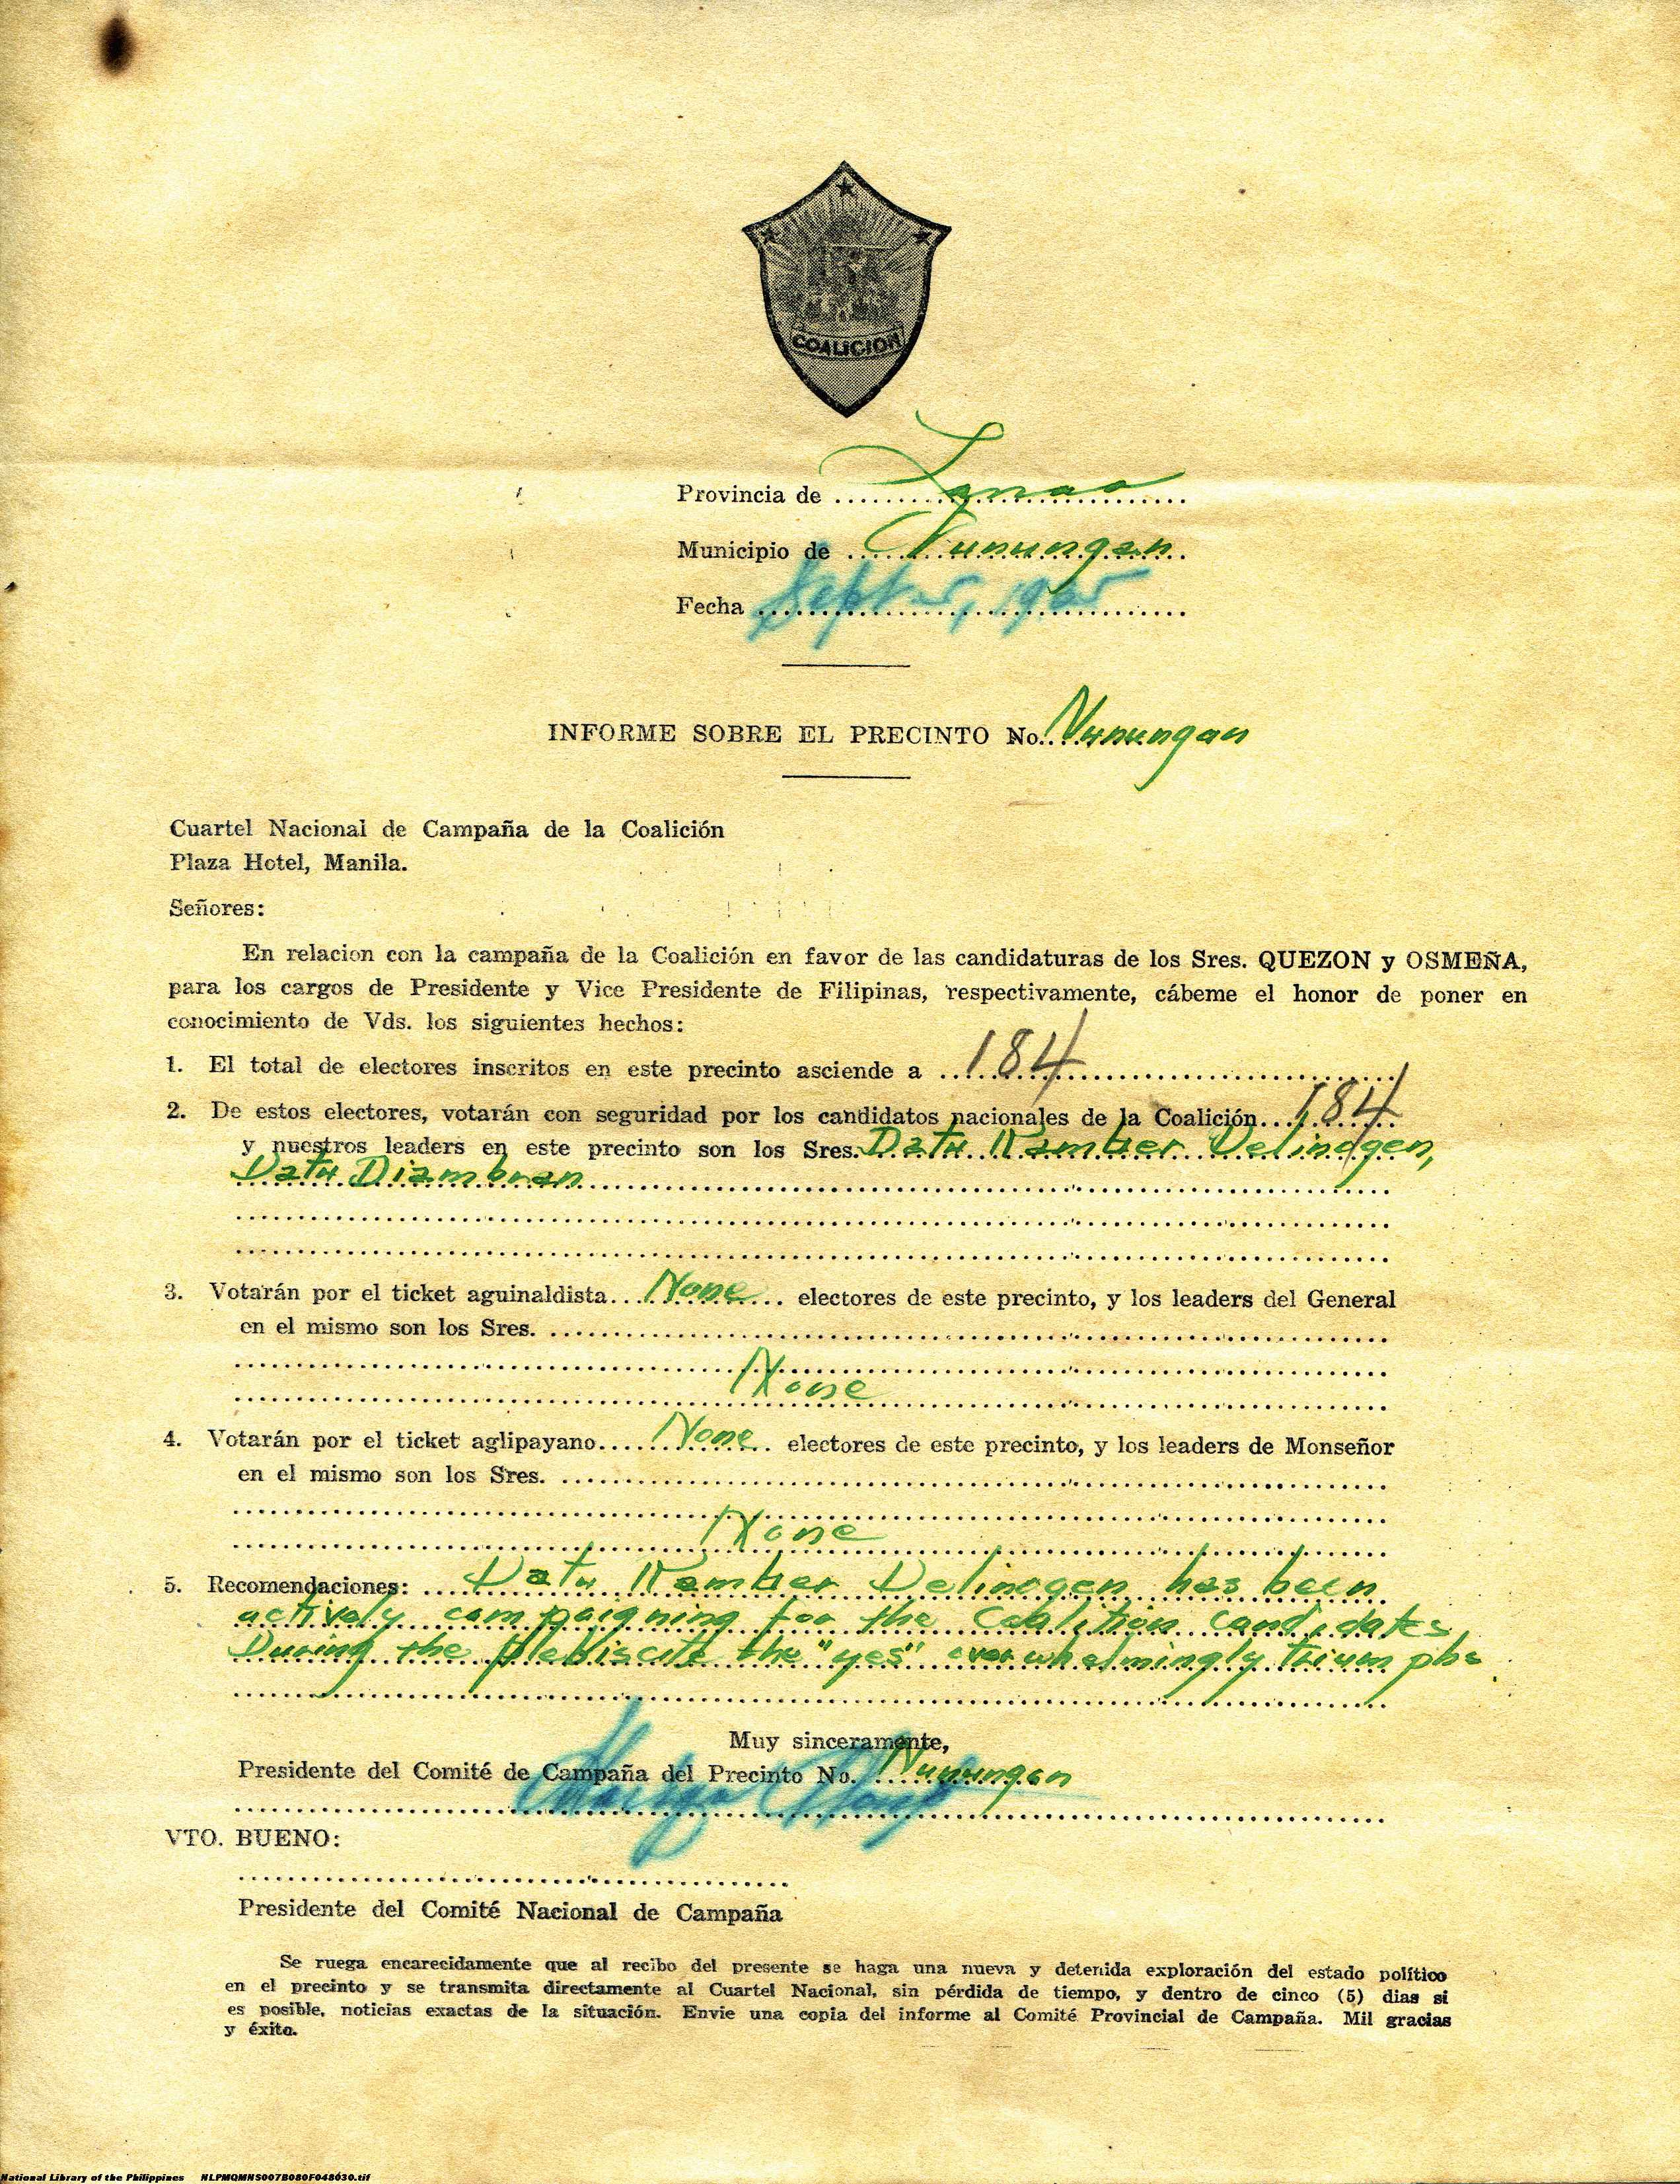 COALICION
Provincia de Lanao
Municipio de Nunungan
Fecha
INFORME SOBRE EL PRECINTO No. Nunungan
Cuartel Nacional de Campaña de la Coalición
Plaza Hotel, Manila.
Señores:
En relacion con la campaña de la Coalición en favor de las candidaturas de los Sres. QUEZON y OSMEÑA,
para los cargos de Presidente y Vice Presidente de Filipinas, respectivamente, cábeme el honor de poner en
conocimiento de Vds. los siguientes hechos:
1. El total de electores inscritos en este precinto asciende a 184
2. De estos electores, votarán con seguridad por los candidatos nacionales de la Coalición 184
y nuestros leaders en este precinto son los Sres. Datu
Datu
3. Votarán por el ticket aguinaldista None electores de este precinto, y los leaders del General
en el mismo son los Sres.
None
4. Votarán por el ticket aglipayano None electores de este precinto, y los leaders de Monseñor
en el mismo son los Sres.
None
5. Recomendaciones: Datu has been
actively campaigning for the Coalition candidates
During the plebiscite the "yes" overwhelmingly
Muy sinceramente,
Presidente del Comité de Campaña del Precinto No. Nunungan
VTO. BUENO:
Presidente del Comité Nacional de Campaña
Se ruega encarecidamente que al recibo del presente se haga una nueva y detenida exploración del estado político
en el precinto y se transmita directamente al Cuartel Nacional, sin pérdida de tiempo, y dentro de cinco (5) dias si
es posible, noticias exactas de la situación. Envie una copia del informe al Comité Provincial de Campaña. Mil gracias
y éxito.
National Library of the Philippines NLPMQMNS007B080F048030.tif